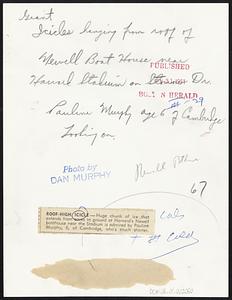 Grant
Icicles hanging from roof of
Newell Boat House near
Harvard Stadium on Dr.
PUBLISHED
BOSTON HERALD
29
Pauline Murphy age 6 of Cambridge
Looking on
Photo by
DAN MURPHY
67
ROOF-HIGH ICICLE — Huge chunk of ice that
extends from roof to ground at Harvard's Newell
boathouse near the Stadium is admired by Pauline
Murphy, 6, of Cambridge, who's much shorter.